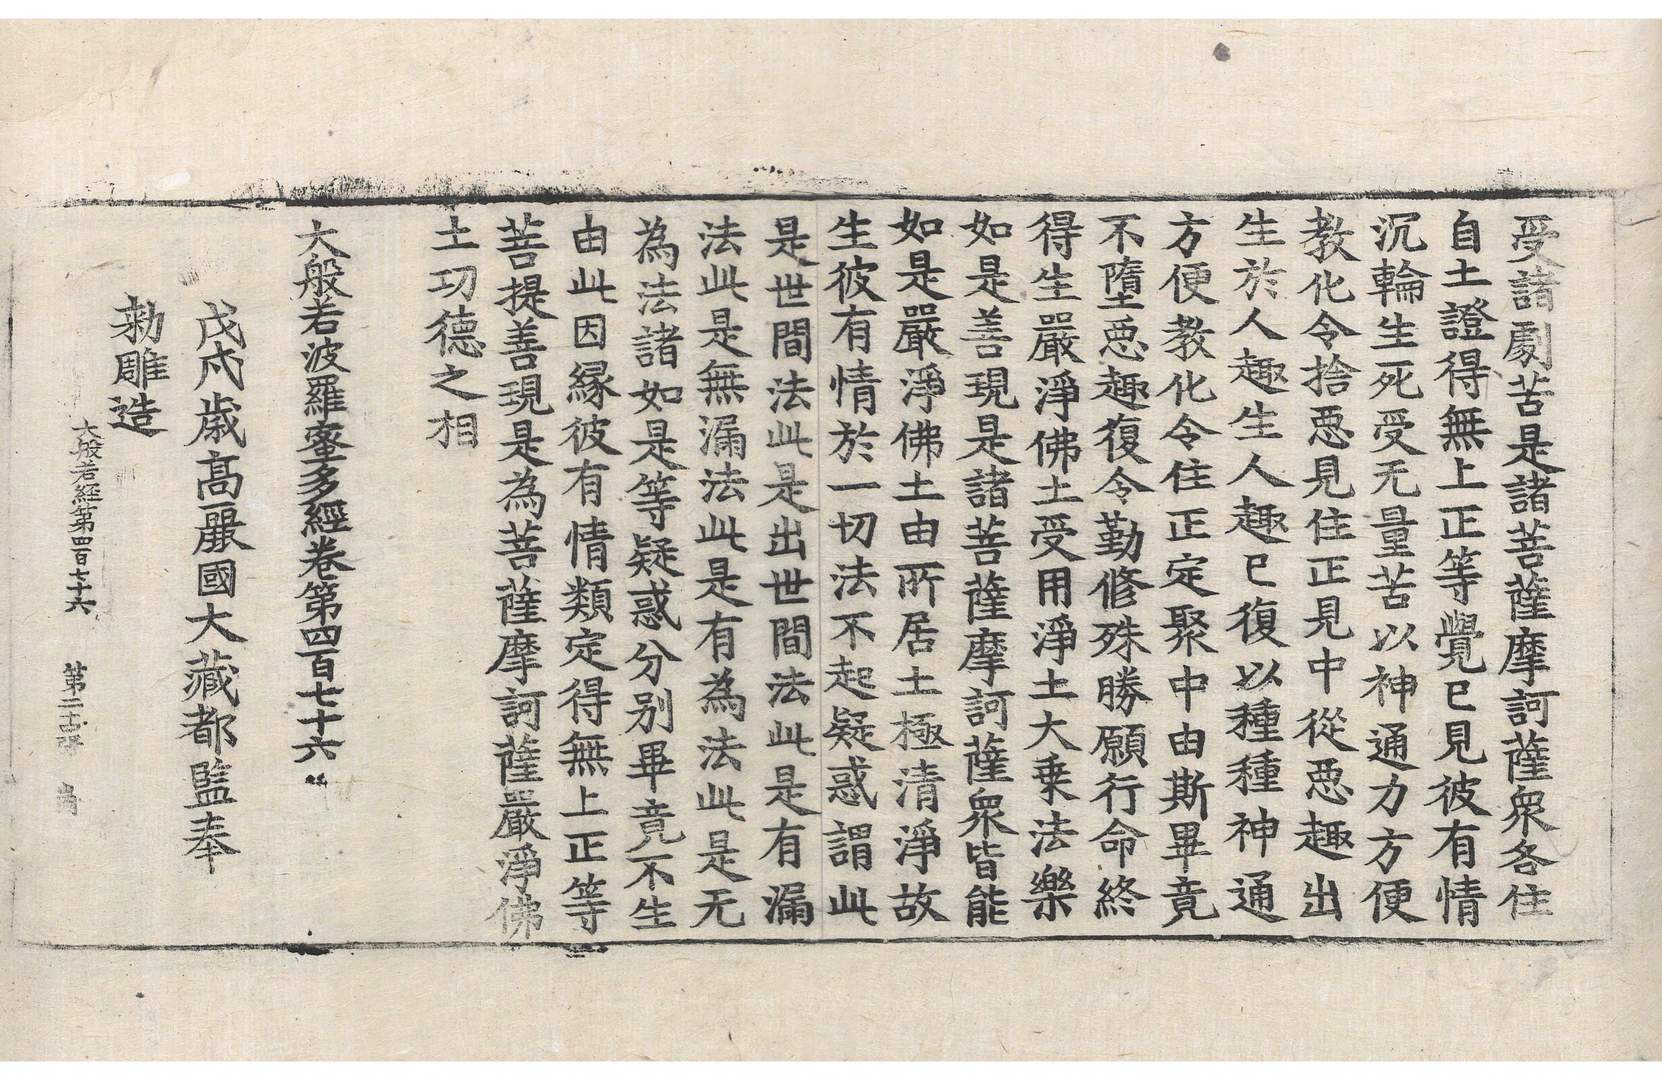 受諸劇苦是諸菩薩摩訶薩衆各住
自土證得無上正等覺已見彼有情
沉輪生死受无量苦以神通力方便
教化令捨惡見住正見中從惡趣出
生於人趣生人趣已復以種種神通
方便教化令住正定聚中由斯畢竟
不墮惡趣復令勤修殊勝願行命終
得生嚴淨佛土受用淨土大乗法樂
如是善現是諸菩薩摩訶薩衆皆能
如是嚴淨佛土由所居土極清淨故
生彼有情於一切法不起疑惑謂此
是世間法此是出世間法此是有漏
法此是無漏法此是有為法此是无
為法諸如是等疑惑分别畢竟不生
由此因縁彼有情類定得無上正等
菩提善現是為菩薩摩訶薩嚴淨佛
土功德之相
大般若波羅蜜多經卷第四百七十六
戊戌歲髙麗國大藏都監奉
勑雕造
大般若経第四百七十六 第二十張